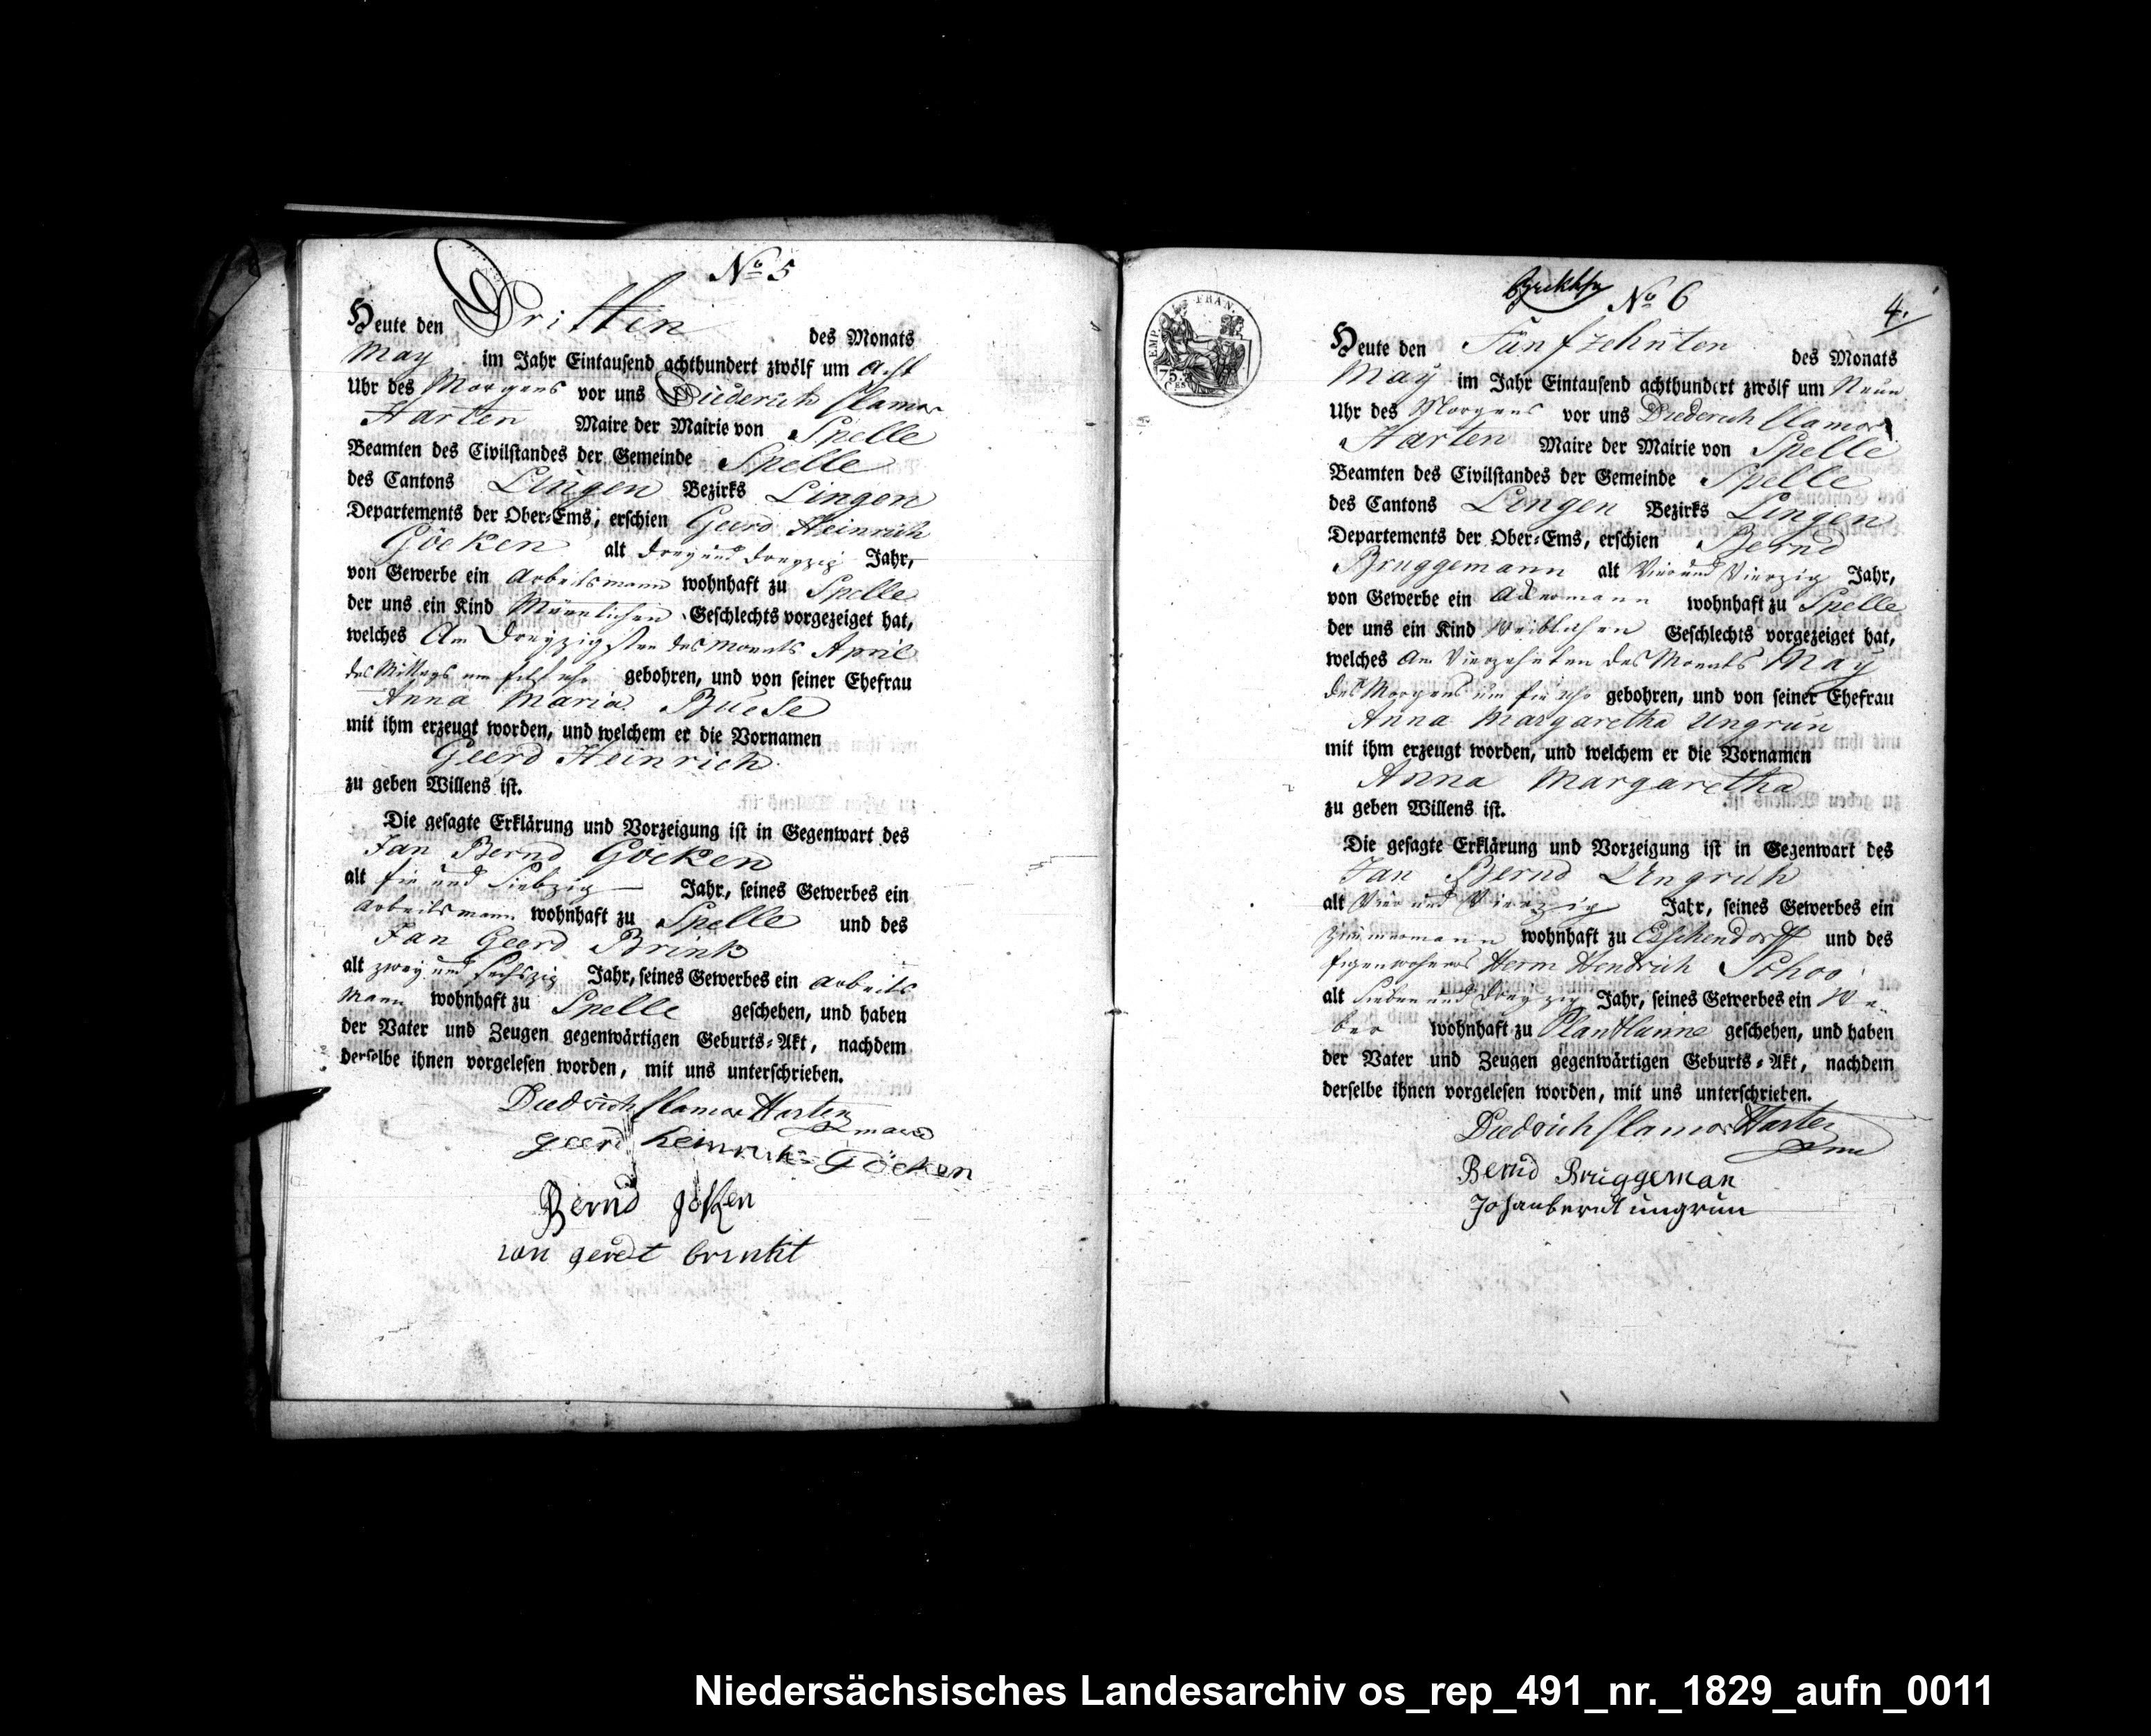 No 5
Heute den Dritten des Monats
May im Jahr Eintausend achthundert zwölf um Acht
Uhr des Morgens vor uns Diederich Clamor
Harten Maire der Mairie von Spelle
Beamten des Civilstandes der Gemeinde Spelle
des Cantons Lingen Bezirks Lingen
Departements der Ober-Ems, erschien Geerd Heinrich
Göeken alt dreyund dreyzig Jahr,
von Gewerbe ein Arbeitsmann wohnhaft zu Spelle
der uns ein Kind Männlichen Geschlechts vorgezeiget hat,
welches Am Dreyzigsten des Monats April
des Mittags um Uhr gebohren, und von seiner Ehefrau
Anna Maria Buese
mit ihm erzeugt worden, und welchem er die Vornamen
Geerd Heinrich
zu geben Willens ist.
Die gesagte Erklärung und Vorzeigung ist in Gegenwart des
Jan Bernd Goeken
alt und Siebzig Jahr, seines Gewerbes ein
Arbeitsmann wohnhaft zu Spelle und des
Jan Geerd Brink
alt zwey und sechszig Jahr, seines Gewerbes ein Arbeits
Mann wohnhaft zu Spelle geschehen, und haben
der Vater und Zeugen gegenwärtigen Geburts-Akt, nachdem
derselbe ihnen vorgelesen worden, mit uns unterschrieben.
Diedrich Clamor Harten
maire
geerd heinrich Göcken
Bernd göken
ian gerdt brinkt
EMP. FRAN.
75
No 6
4.
Heute den Fünfzehnten des Monats
May im Jahr Eintausend achthundert zwölf um Neun
Uhr des Morgens vor uns Diederich Clamor
Harten Maire der Mairie von Spelle
Beamten des Civilstandes der Gemeinde Spelle
des Cantons Lingen Bezirks Lingen
Departements der Ober-Ems, erschien Bernd
Bruggemann alt Vierund Vierzig Jahr,
von Gewerbe ein Ackermann wohnhaft zu Spelle
der uns ein Kind Weiblichen Geschlechts vorgezeiget hat,
welches Am Vierzehnten des Monats May
des Morgens um Uhr gebohren, und von seiner Ehefrau
Anna Margaretha Ungrun
mit ihm erzeugt worden, und welchem er die Vornamen
Anna Margaretha
zu geben Willens ist.
Die gesagte Erklärung und Vorzeigung ist in Gegenwart des
Jan Bernd Ungruh
alt Vier und Vierzig Jahr, seines Gewerbes ein
Zimmermann wohnhaft zu Esschendorff und des
Herm Hendrich Schoo
alt Sieben und Dreyzig Jahr, seines Gewerbes ein We
ber wohnhaft zu Plantlünne geschehen, und haben
der Vater und Zeugen gegenwärtigen Geburts-Akt, nachdem
derselbe ihnen vorgelesen worden, mit uns unterschrieben.
Diedrich Clamor Harten
Bernd Brüggeman
Johanbernd ungrün
Niedersächsisches Landesarchiv os_rep_491_nr._1829_aufn_0011